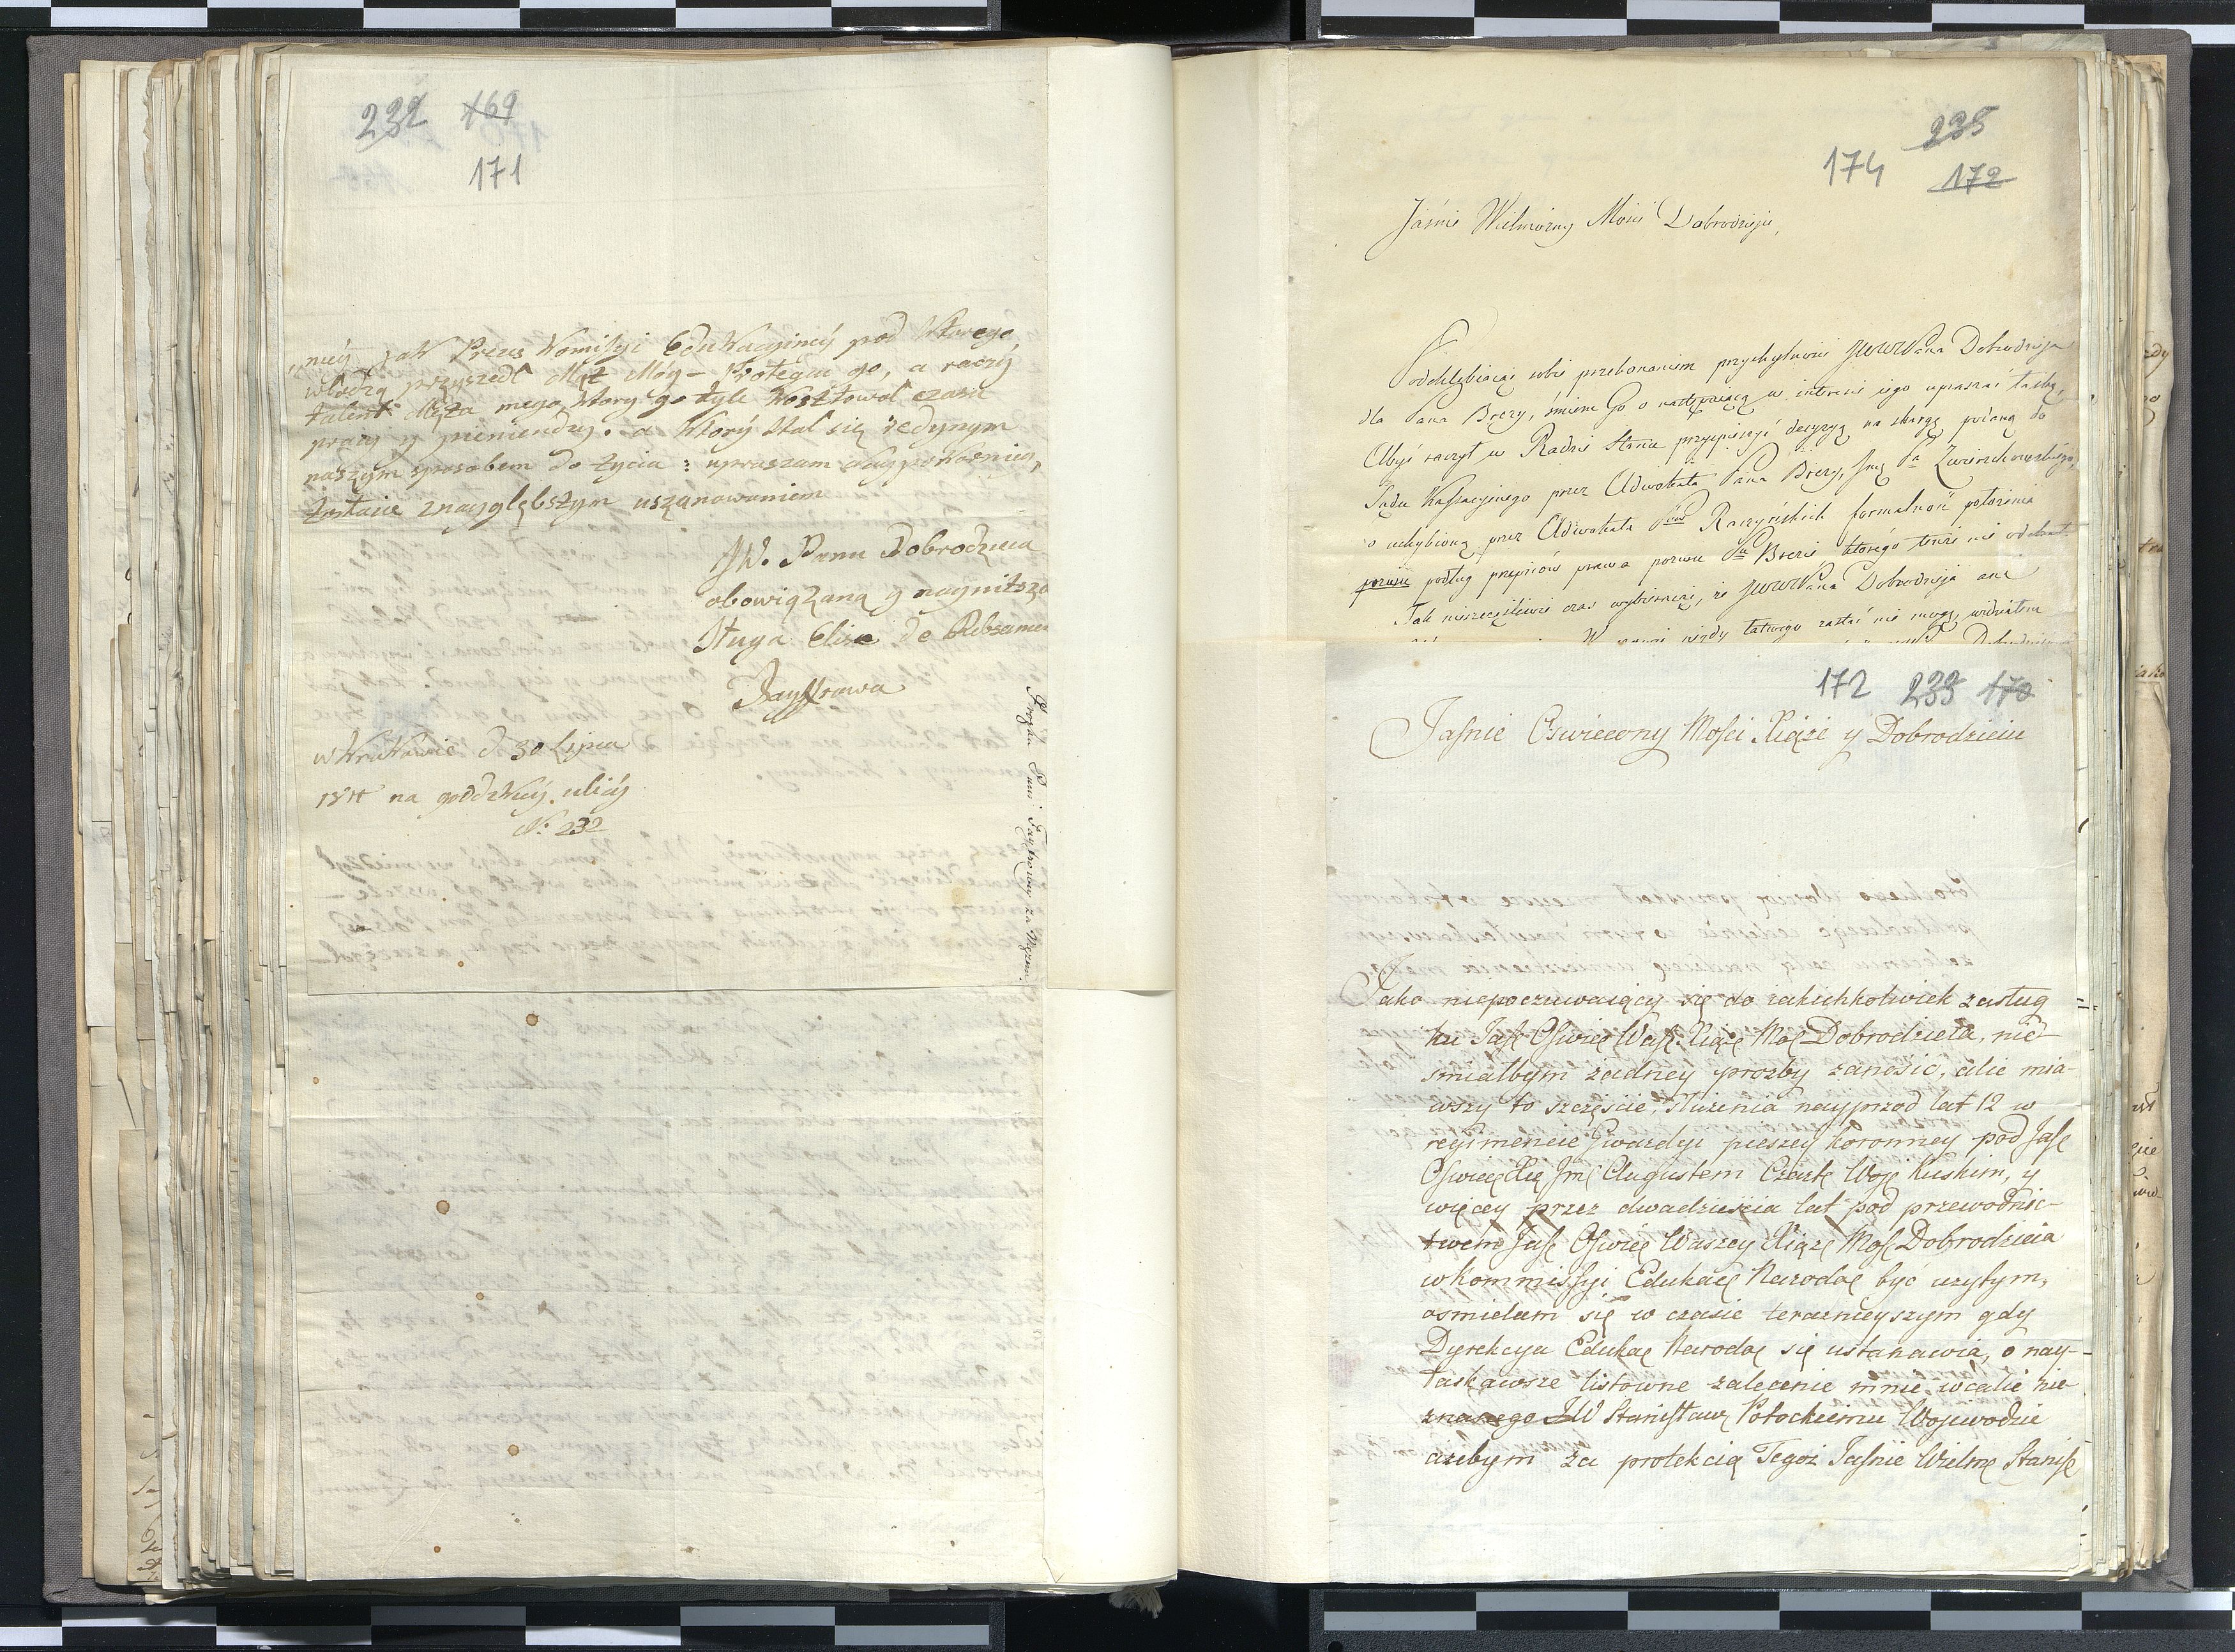 232 169
171
niey jak Prezes Komisyi Edukacyiney pod ktorego
władzą przyszedł Mąż Móy – Protegui go, a raczey
talent Męża mego ktory go tyle kosztował czasu
pracy y pieniendzy. a który stał się iedynym
naszym sposobem do życia: upraszam
zostaię z naygłębszym uszanowaniem
JW. Pana Dobrodzieia
obowiązaną y nayniższą
sługa Elise de
w Krakowie d 30 Lipca
na grodzkiey ulicy
No 232
Prozba Pani za Mężem.
235
174 172
Jaśnie Wielmożny Mości Dobrodzieju,
Podchlebiając sobie przekonaniem przychylności JWWPana Dobrodzieja
dla Pana Brezy, śmiem Go o następuiącą w interesie iego upraszać łaskę,
Abyś raczył w Radzie Stanu przyspieszyć decyzyą na skargę podaną do
Sądu Kassacyinego przez Adwokata Pana Brezy, Jmę Pa
o uchybioną przez Adwokata Raczyńskich formalność położenia
pozwu podług przepisów prawa pozwu Pu Brezie którego tenże nie
Tak nieszczęśliwie czas wybieraiąc, że JWWPana Dobrodzieja ani
zastać nie mogę, widziałem
172 233 170
Jaśnie Oświecony Mości Xiąże y Dobrodzieiu
Jako niepoczuwaiący się do iakichkolwiek zasług
ku Jaśę Oświeę Waszę Xiążę Mośę Dobrodzieia, nie
śmiałbym żadney prozby zanosić, alie mia-
wszy to szczęście, służenia nayprzod lat 12 w
regimencie Gwardyi pieszey koronney pod Jaśę
Oświeę Xię Jmę Augustem Czartę Woię Ruskim, y
więcey przez dwadzieścia lat pod przewodnic-
twem Jaśę Oświeę Waszey Xiążę Mośę Dobrodzieia
w Kommissyi Edukacę Narodoę być użytym,
ośmielam się w czasie teraznieyszym gdy
Dyrekcya Edukaę Narodoę się ustanawia, o nay-
łaskawsze listowne zalecenie mnie, wcalie nie
znanego JW Stanisławę Potockiemu Woiewodzie
ażebym za protekcią Tegoż Jaśnie Wielmę Stanisę